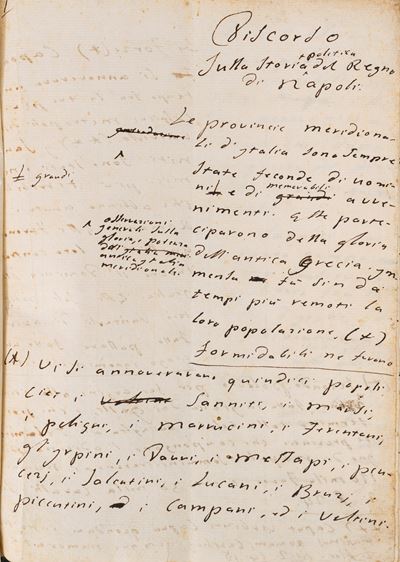 Discorso
politica
Sulla Storia del Regno
di Napoli.
Le provincie meridiona-
li d'Italia sono sempre
state feconde di uomi-
grandi
ni e di memorabili avve-
nimenti. Elle parte-
ciparono della gloria
dell'antica Grecia. Im-
mensa fu sin da'
tempi più remoti la
loro popolazione. (*)
Formidabili ne furono
osservazioni
generali sulla
gloria, e potenza
antica Italia
meridionale
(*) Vi si annoveravano quindici popoli
cioè i Sanniti, i Marsi,
i peligni, i marrucini, i Ferentani,
gl'Irpini, i Dauni, i Messapi, i peu-
cezj, i Salentini, i Lucani, i Bruzj, i
picentini, i Campani, ed i Volsini.